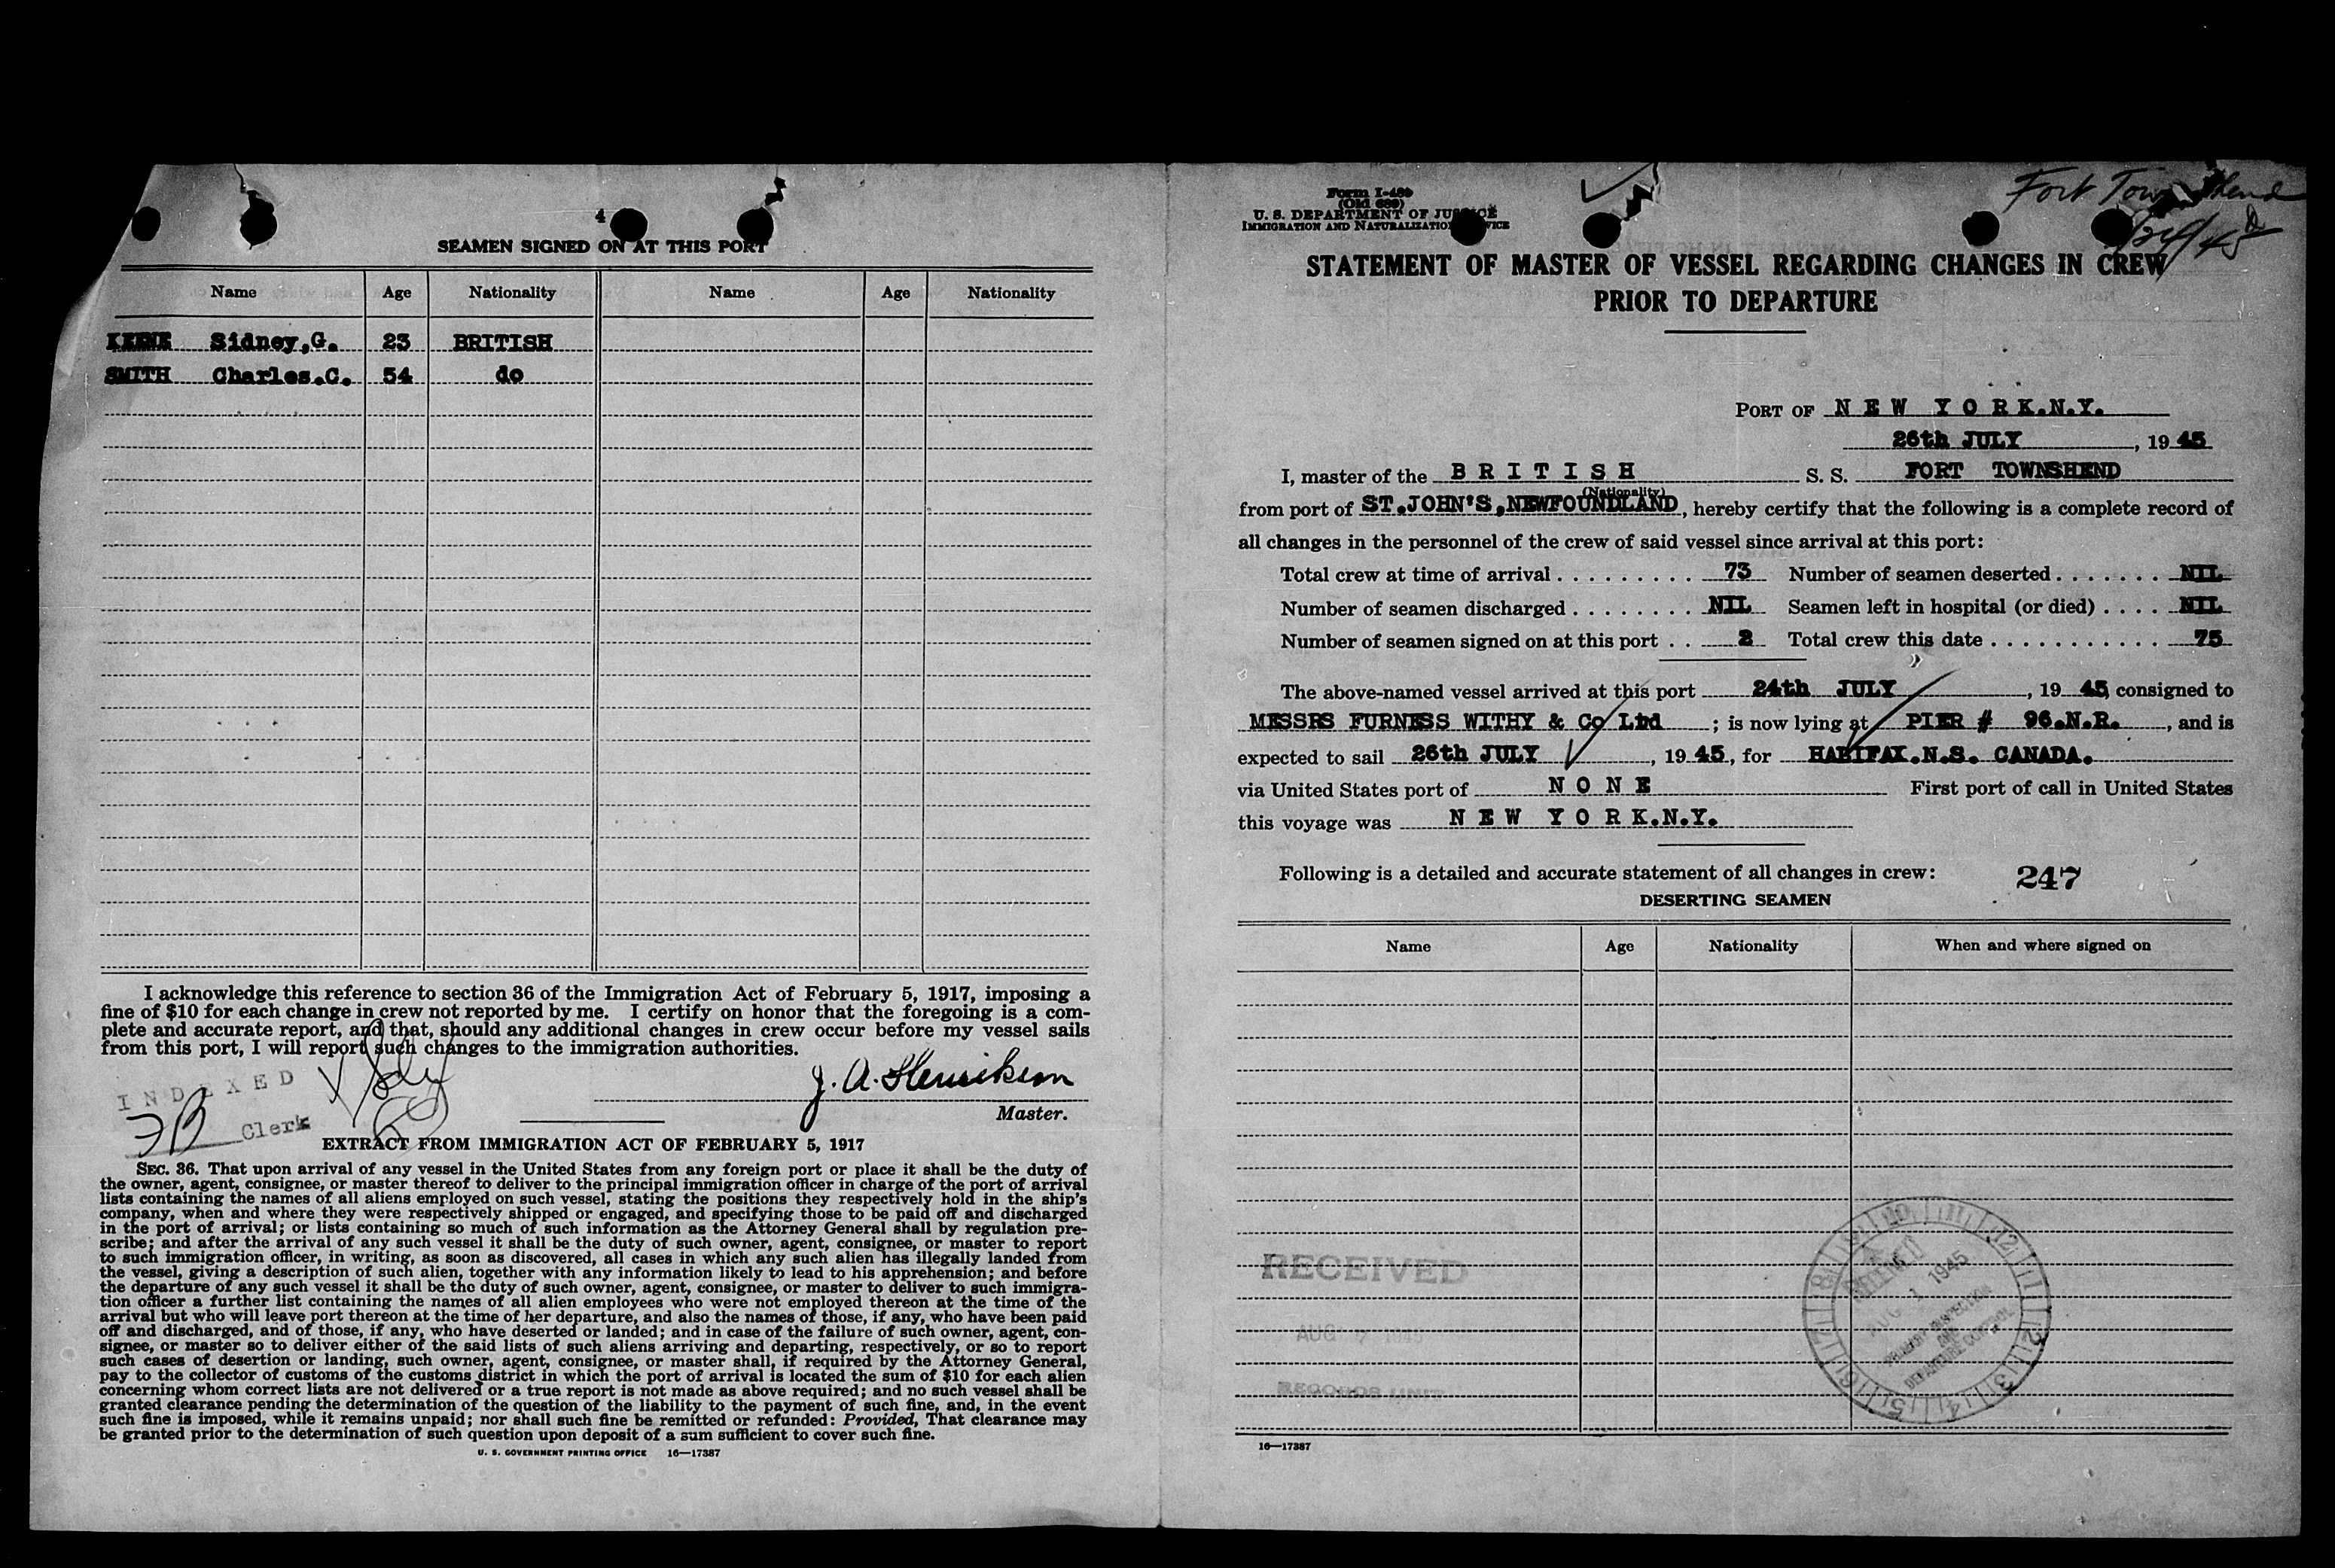 4
SEAMEN SIGNED ON AT THIS PORT
Name Age Nationality Name Age Nationality
KEENE Sidney,G. 23 BRITISH
SMITH Charles.C. 54 do
I acknowledge this reference to section 36 of the Immigration Act of February 5, 1917, imposing a
fine of $10 for each change in crew not reported by me. I certify on honor that the foregoing is a com-
plete and accurate report, and that, should any additional changes in crew occur before my vessel sails
from this port, I will report such changes to the immigration authorities.
INDEXED
J. A. Henrikson
Master.
FB Clerk
EXTRACT FROM IMMIGRATION ACT OF FEBRUARY 5, 1917
SEC. 36. That upon arrival of any vessel in the United States from any foreign port or place it shall be the duty of
the owner, agent, consignee, or master thereof to deliver to the principal immigration officer in charge of the port of arrival
lists containing the names of all aliens employed on such vessel, stating the positions they respectively hold in the ship's
company, when and where they were respectively shipped or engaged, and specifying those to be paid off and discharged
in the port of arrival; or lists containing so much of such information as the Attorney General shall by regulation pre-
scribe; and after the arrival of any such vessel it shall be the duty of such owner, agent, consignee, or master to report
to such immigration officer, in writing, as soon as discovered, all cases in which any such alien has illegally landed from
the vessel, giving a description of such alien, together with any information likely to lead to his apprehension; and before
the departure of any such vessel it shall be the duty of such owner, agent, consignee, or master to deliver to such immigra-
tion officer a further list containing the names of all alien employees who were not employed thereon at the time of the
arrival but who will leave port thereon at the time of her departure, and also the names of those, if any, who have been paid
off and discharged, and of those, if any, who have deserted or landed; and in case of the failure of such owner, agent, con-
signee, or master so to deliver either of the said lists of such aliens arriving and departing, respectively, or so to report
such cases of desertion or landing, such owner, agent, consignee, or master shall, if required by the Attorney General,
pay to the collector of customs of the customs district in which the port of arrival is located the sum of $10 for each alien
concerning whom correct lists are not delivered or a true report is not made as above required; and no such vessel shall be
granted clearance pending the determination of the question of the liability to the payment of such fine, and, in the event
such fine is imposed, while it remains unpaid; nor shall such fine be remitted or refunded: Provided, That clearance may
be granted prior to the determination of such question upon deposit of a sum sufficient to cover such fine.
U. S. GOVERNMENT PRINTING OFFICE 16—17387
Form I-489
(Old 689)
U. S. DEPARTMENT OF JUSTICE
IMMIGRATION AND NATURALIZATION SERVICE
Fort Townshend
STATEMENT OF MASTER OF VESSEL REGARDING CHANGES IN CREW
PRIOR TO DEPARTURE
PORT OF NEW YORK.N.Y.
26th JULY, 19 45
I, master of the BRITISH S. S. FORT TOWNSHEND
(Nationality)
from port of ST.JOHN'S,NEWFOUNDLAND, hereby certify that the following is a complete record of
all changes in the personnel of the crew of said vessel since arrival at this port:
Total crew at time of arrival . . . . . . . . . 73 Number of seamen deserted . . . . . . . NIL
Number of seamen discharged . . . . . . . . NIL Seamen left in hospital (or died) . . . . NIL
Number of seamen signed on at this port . . 2 Total crew this date . . . . . . . . . . . . 75
The above-named vessel arrived at this port 24th JULY, 19 45, consigned to
MESSRS FURNESS WITHY & Co Ltd ; is now lying at PIER # 96.N.R. , and is
expected to sail 26th JULY, 19 45, for HALIFAX.N.S. CANADA.
via United States port of NONE First port of call in United States
this voyage was NEW YORK.N.Y.
Following is a detailed and accurate statement of all changes in crew: 247
DESERTING SEAMEN
Name Age Nationality When and where signed on
RECEIVED
AUG
RECORDS UNIT
RECEIVED
AUG 1 1945
DEPARTURE CONTROL
16—17387